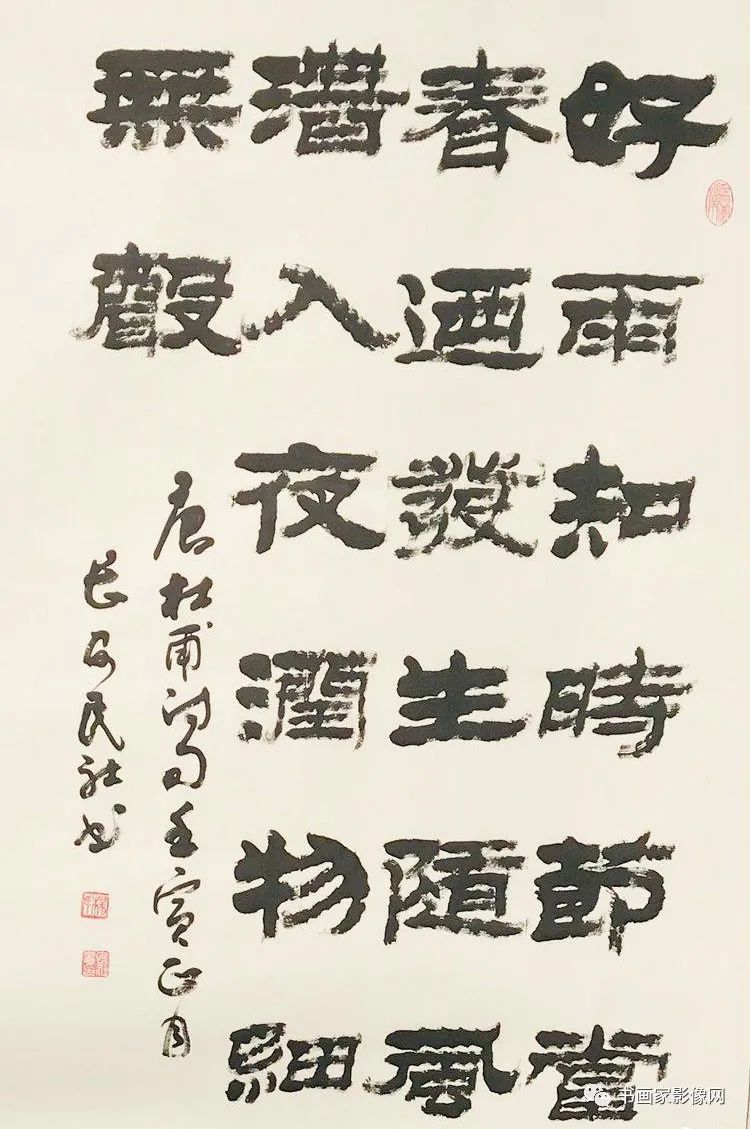 好雨知時節當
春迺發生隨風
潛入夜潤物細
無聲
唐杜甫詩句壬寅正月
長安民社書
书画家影像网